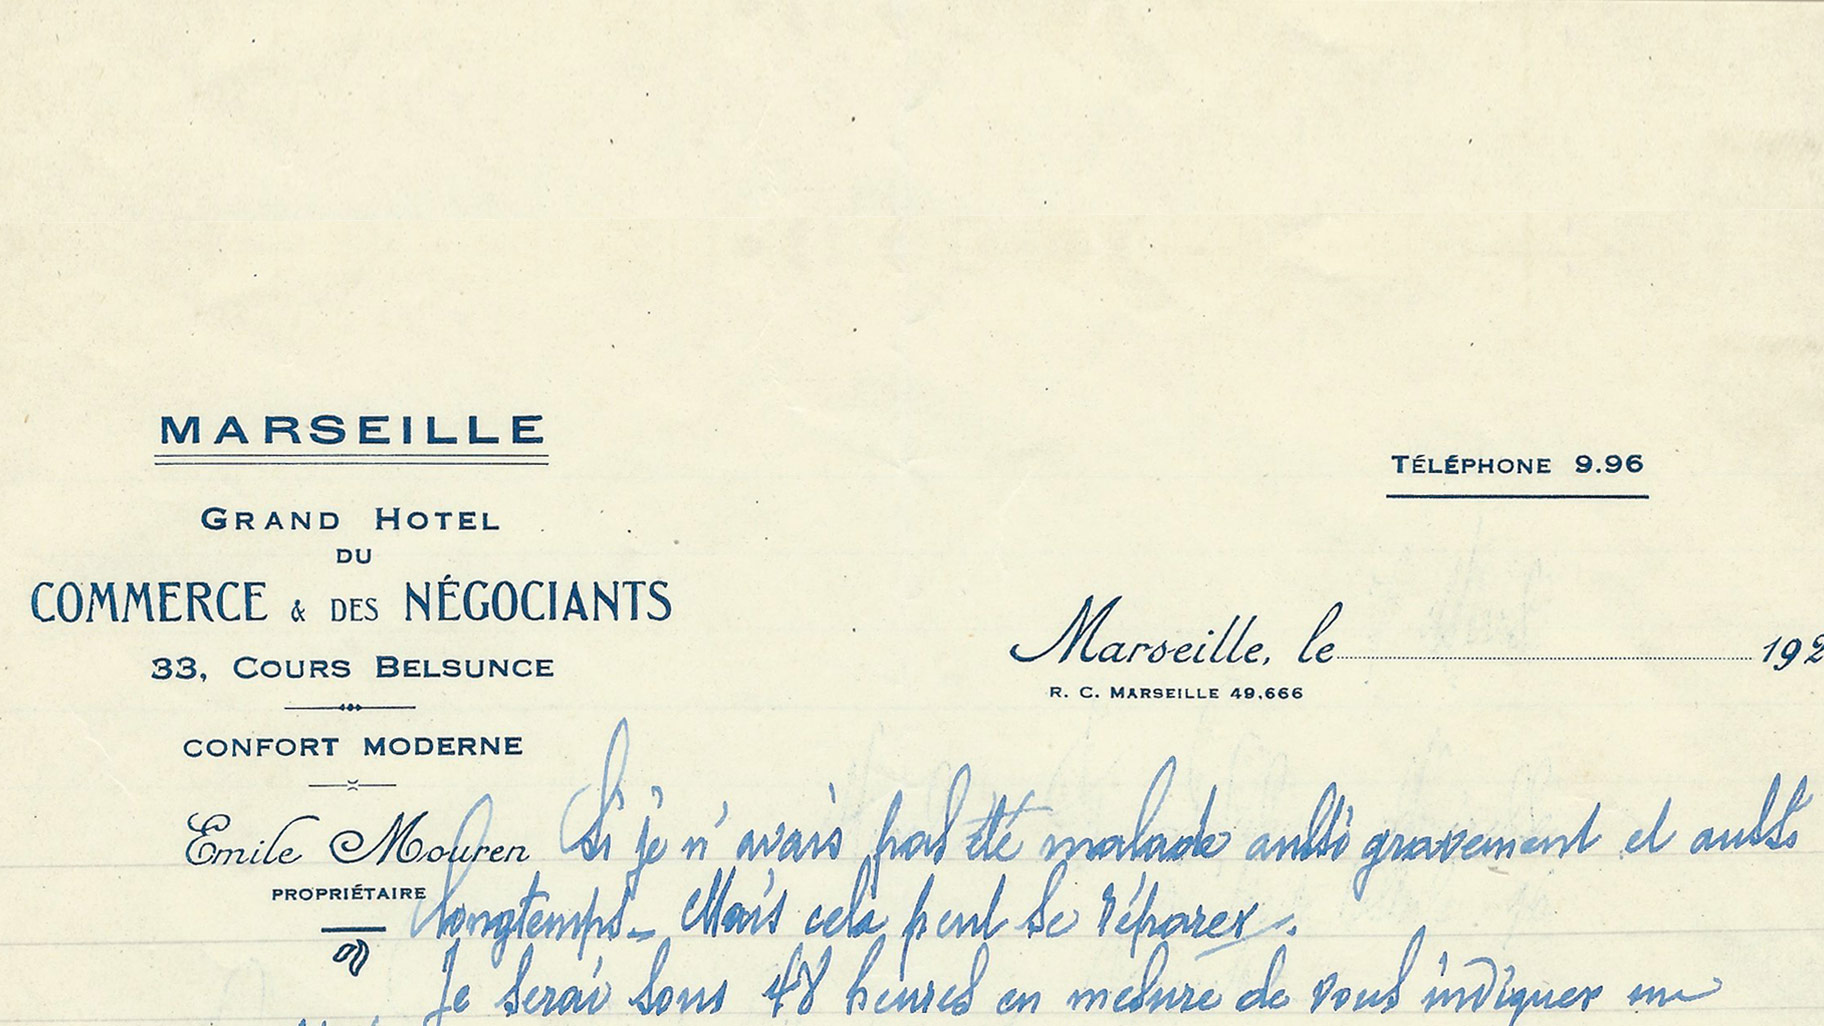 MARSEILLE
GRAND HOTEL
DU
COMMERCE & DES NÉGOCIANTS
33, COURS BELSUNCE
CONFORT MODERNE
Emile Mouren
PROPRIÉTAIRE
TÉLÉPHONE 9.96
Marseille, le 192
R. C. MARSEILLE 49.666
Si je n'avais pas été malade aussi gravement et aussi
longtemps_ Mais cela peut se réparer_.
Je serai sous 48 heures en mesure de vous indiquer une